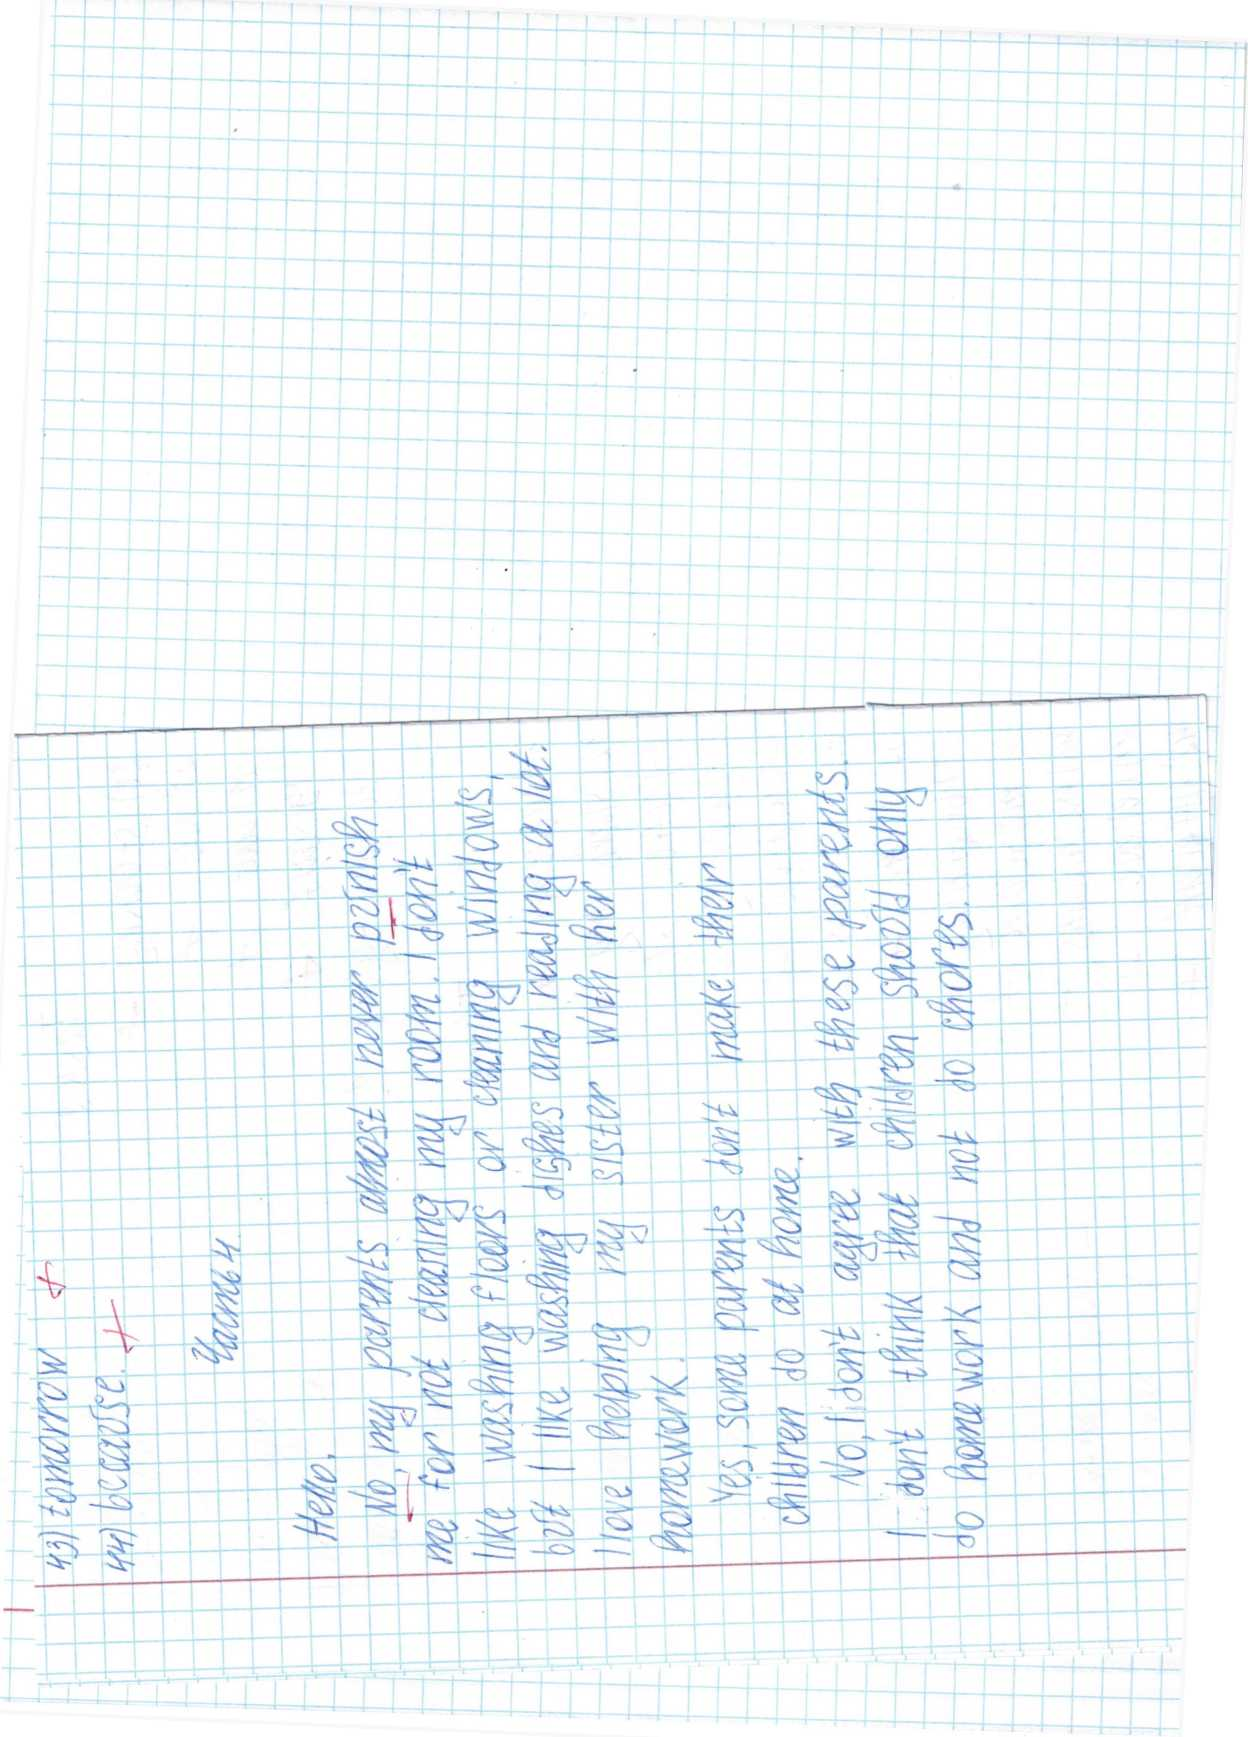 43) tomorrow +
44) because. +
Часть 4
Hello,
No, my parents almost never punish
me for not cleaning my room. I don't
like washing floors or cleaning windows,
but I like washing dishes and reading a lot.
I love helping my sister with her
homework.
Yes, some parents don't make their
children do at home.
No, I don't agree with these parents.
I don't think that children should only
do homework and not do chores.